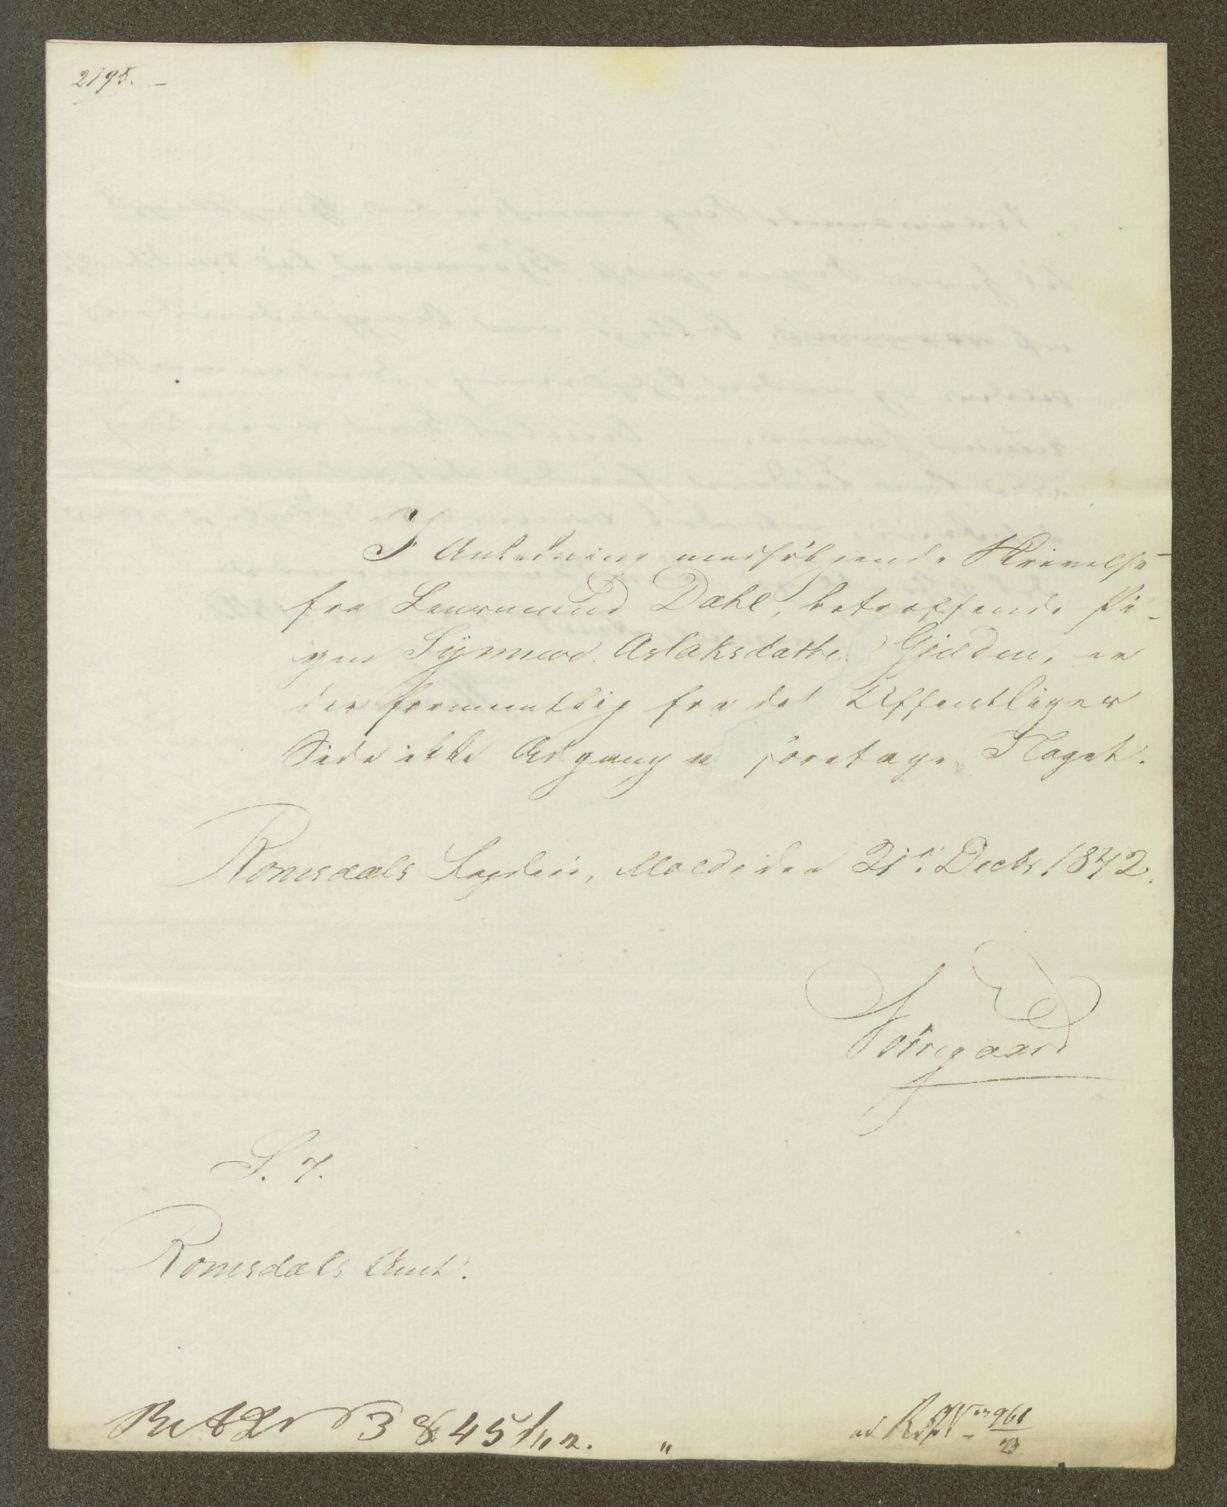 2195. –
I Anledning medfølgende Skrivelse
fra Lensmand Dahl, betræffende Pi-
gen Synneve Aslaksdatter Gjelden, er
der formentlig fra det Offentliges
Side ikke Adgang a foretage Noget.
Romsdals Fogderi, Molde den 21de Decbr 1842.
Norregaard
S. T.
Romsdals Amt.
3 & 45
ad
961
23